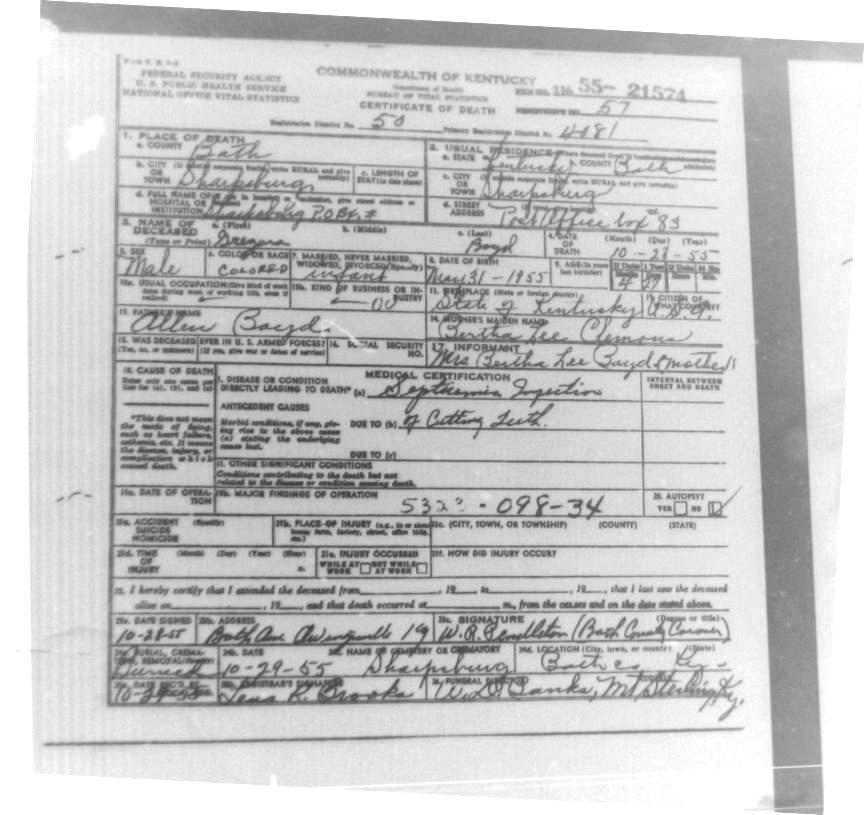 FEDERAL SECURITY AGENCY
U. S. PUBLIC HEALTH SERVICE
NATIONAL OFFICE VITAL STATISTICS
COMMONWEALTH OF KENTUCKY
Department of Health
BUREAU OF VITAL STATISTICS
CERTIFICATE OF DEATH
116 55- 21574
57
Registration District No. 50 Primary Registration District No. 4081
1. PLACE OF DEATH
a. COUNTY Bath
2. USUAL RESIDENCE
a. STATE Kentucky b. COUNTY Bath
b. CITY OR TOWN Sharpsburg
c. LENGTH OF STAY (in this place)
c. CITY OR TOWN Sharpsburg
d. FULL NAME OF HOSPITAL OR INSTITUTION Sharpsburg P.O. Box #
d. STREET ADDRESS Post Office box #83
3. NAME OF DECEASED (Type or Print)
a. (First) b. (Middle) c. (Last) Boyd
4. DATE OF DEATH (Month) (Day) (Year) 10-28-55
5. SEX Male
6. COLOR OR RACE COLORED
7. MARRIED, NEVER MARRIED, WIDOWED, DIVORCED (Specify) infant
8. DATE OF BIRTH May 31-1955
9. AGE (In years last birthday) 4 27
10a. USUAL OCCUPATION
10b. KIND OF BUSINESS OR INDUSTRY
11. BIRTHPLACE (State or foreign country) State of Kentucky
12. CITIZEN OF WHAT COUNTRY? U.S.A.
13. FATHER'S NAME
Allen Boyd.
14. MOTHER'S MAIDEN NAME
Bertha Lee Clemons
15. WAS DECEASED EVER IN U. S. ARMED FORCES?
(Yes, no, or unknown) (If yes, give war or dates of service)
16. SOCIAL SECURITY NO.
17. INFORMANT
Mrs Bertha Lee Boyd (mother)
18. CAUSE OF DEATH
Enter only one cause per line for (a), (b), and (c)
MEDICAL CERTIFICATION
INTERVAL BETWEEN ONSET AND DEATH
I. DISEASE OR CONDITION DIRECTLY LEADING TO DEATH* (a) Septicemia Injection
*This does not mean the mode of dying, such as heart failure, asthenia, etc. It means the disease, injury, or complication which caused death.
ANTECEDENT CAUSES
Morbid conditions, if any, giving rise to the above cause (a) stating the underlying cause last.
DUE TO (b) of Cutting Teeth.
DUE TO (c)
II. OTHER SIGNIFICANT CONDITIONS
Conditions contributing to the death but not related to the disease or condition causing death.
19a. DATE OF OPERATION
19b. MAJOR FINDINGS OF OPERATION
098-34
20. AUTOPSY?
YES NO
21a. ACCIDENT SUICIDE HOMICIDE (Specify)
21b. PLACE OF INJURY (e.g., in or about home, farm, factory, street, office bldg., etc.)
21c. (CITY, TOWN, OR TOWNSHIP) (COUNTY) (STATE)
21d. TIME OF INJURY (Month) (Day) (Year) (Hour) m.
21e. INJURY OCCURRED
WHILE AT WORK NOT WHILE AT WORK
21f. HOW DID INJURY OCCUR?
22. I hereby certify that I attended the deceased from , 19 to , 19 , that I last saw the deceased
alive on , 19 , and that death occurred at m., from the causes and on the date stated above.
23a. DATE SIGNED 10-28-55
23b. ADDRESS Bath Ave Owingsville Ky
23c. SIGNATURE (Degree or title) W.R. Pendleton (Bath County Coroner)
24a. BURIAL, CREMATION, REMOVAL (Specify)
24b. DATE 10-29-55
24c. NAME OF CEMETERY OR CREMATORY Sharpsburg
24d. LOCATION (City, town, or county) (State) Bath co. Ky.
25a. DATE REC'D BY
25b. REGISTRAR'S SIGNATURE Brooks
26. FUNERAL DIRECTOR ADDRESS W.D. Banks, Mt Sterling, Ky.